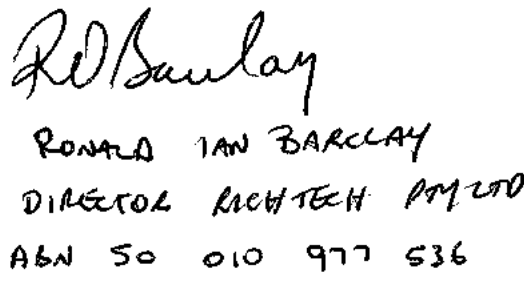 RW Barclay
RONALD IAN BARCLAY
DIRECTOR RICHTECH PTY LTD
ABN 50 010 977 536